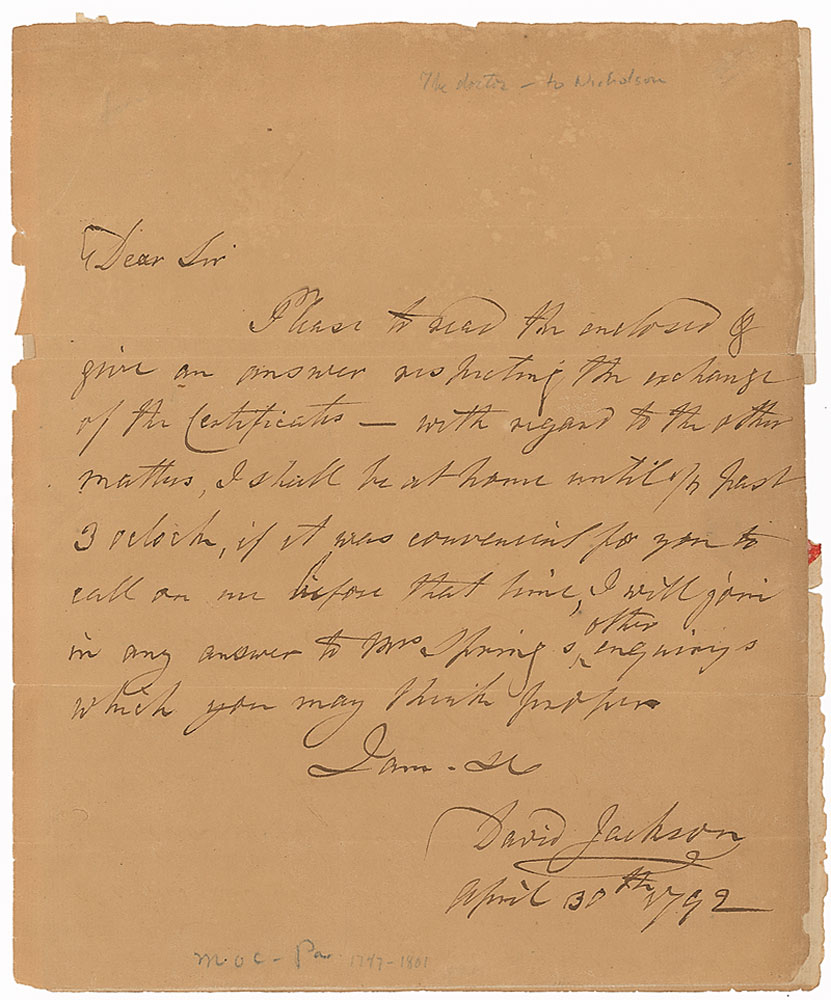 The doctor — to Nicholson
Dear Sir
Please to read the enclosed &
give an answer respecting the exchange
of the Certificates — with regard to the other
matters, I shall be at home until ½ past
3 oclock, if it was convenient for you to
call on me before that time, I will join
in any answer to Mrs Spring's, other enquirys
which you may think proper
I am - &c
David Jackson
April 30th 1792
M O C - Pa 1747-1801